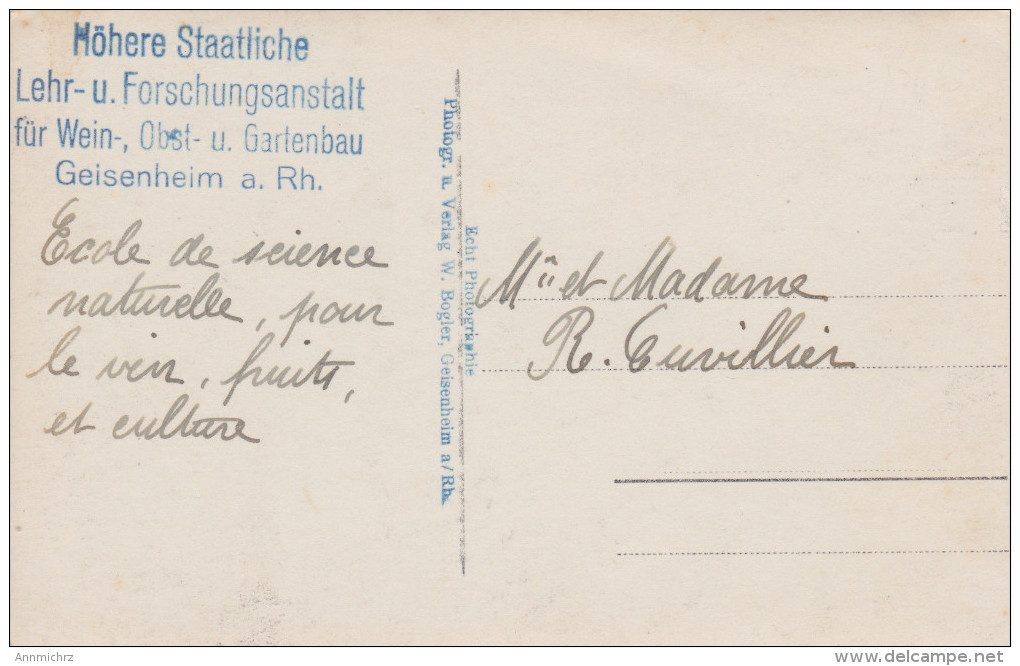 Höhere Staatliche
Lehr- u. Forschungsanstalt
für Wein-, Obst- u. Gartenbau
Geisenheim a. Rh.
Ecole de science
naturelle, pour
le vin, fruits,
et culture
Photogr. u. Verlag W. Bogler, Geisenheim a/Rh.
Echt Photographie
et Madame
R. Cuvillier
Annmichrz
www.delcampe.net